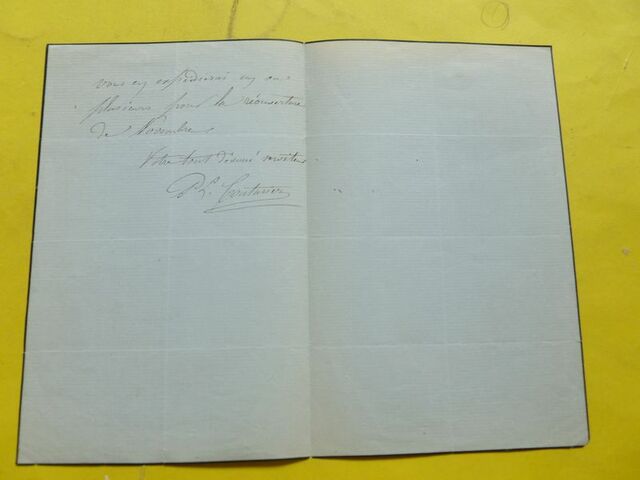 vous en expédierai un ou
plusieurs pour la réouverture
de Novembre
Votre tout dévoué serviteur
Ph. Couturier